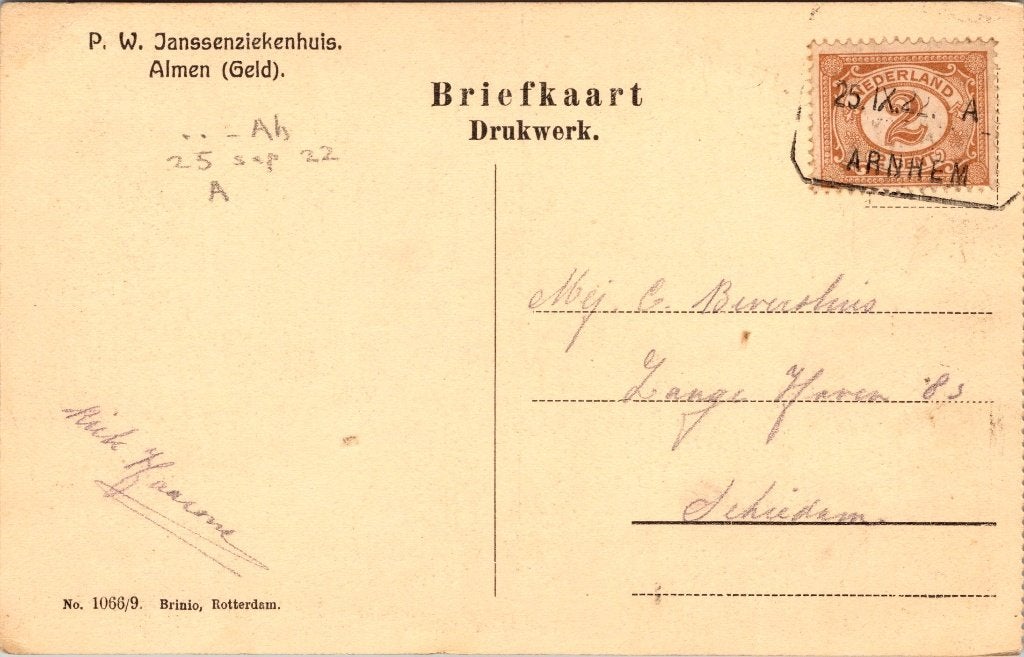 P. W. Janssenziekenhuis.
Almen (Geld).
Briefkaart
Drukwerk.
.. - Ah
25 sep 22
A
NEDERLAND
2
25. IX. 2 A
ARNHEM
Mej. C.
Lange Haven 83
Schiedam.
No. 1066/9. Brinio, Rotterdam.